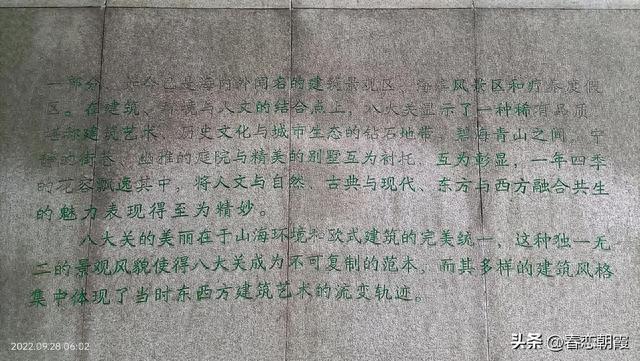 一部分，如今已是海内外闻名的建筑景观区、海滨风景区和疗养度假
区。在建筑、环境与人文的结合点上，八大关显示了一种稀有品质
建筑艺术、历史文化与城市生态的钻石地带。碧海青山之间，宁
静的街巷、幽雅的庭院与精美的别墅互为衬托、互为彰显，一年四季
的花容飘逸其中，将人文与自然、古典与现代、东方与西方融合共生
的魅力表现得至为精妙。
八大关的美丽在于山海环境和欧式建筑的完美统一，这种独一无
二的景观风貌使得八大关成为不可复制的范本，而其多样的建筑风格
集中体现了当时东西方建筑艺术的流变轨迹。
2022.09.28 06:02
头条 @春恋朝霞